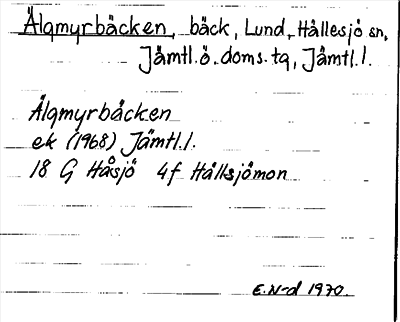 Älgmyrbäcken, bäck, Lund, Hållesjö sn,
Jämtl.ö.doms.tg, Jämtl.l.
Älgmyrbäcken
ek (1968) Jämtl.l.
18 G Håsjö 4f Hällsjömon
E.N-d 1970.